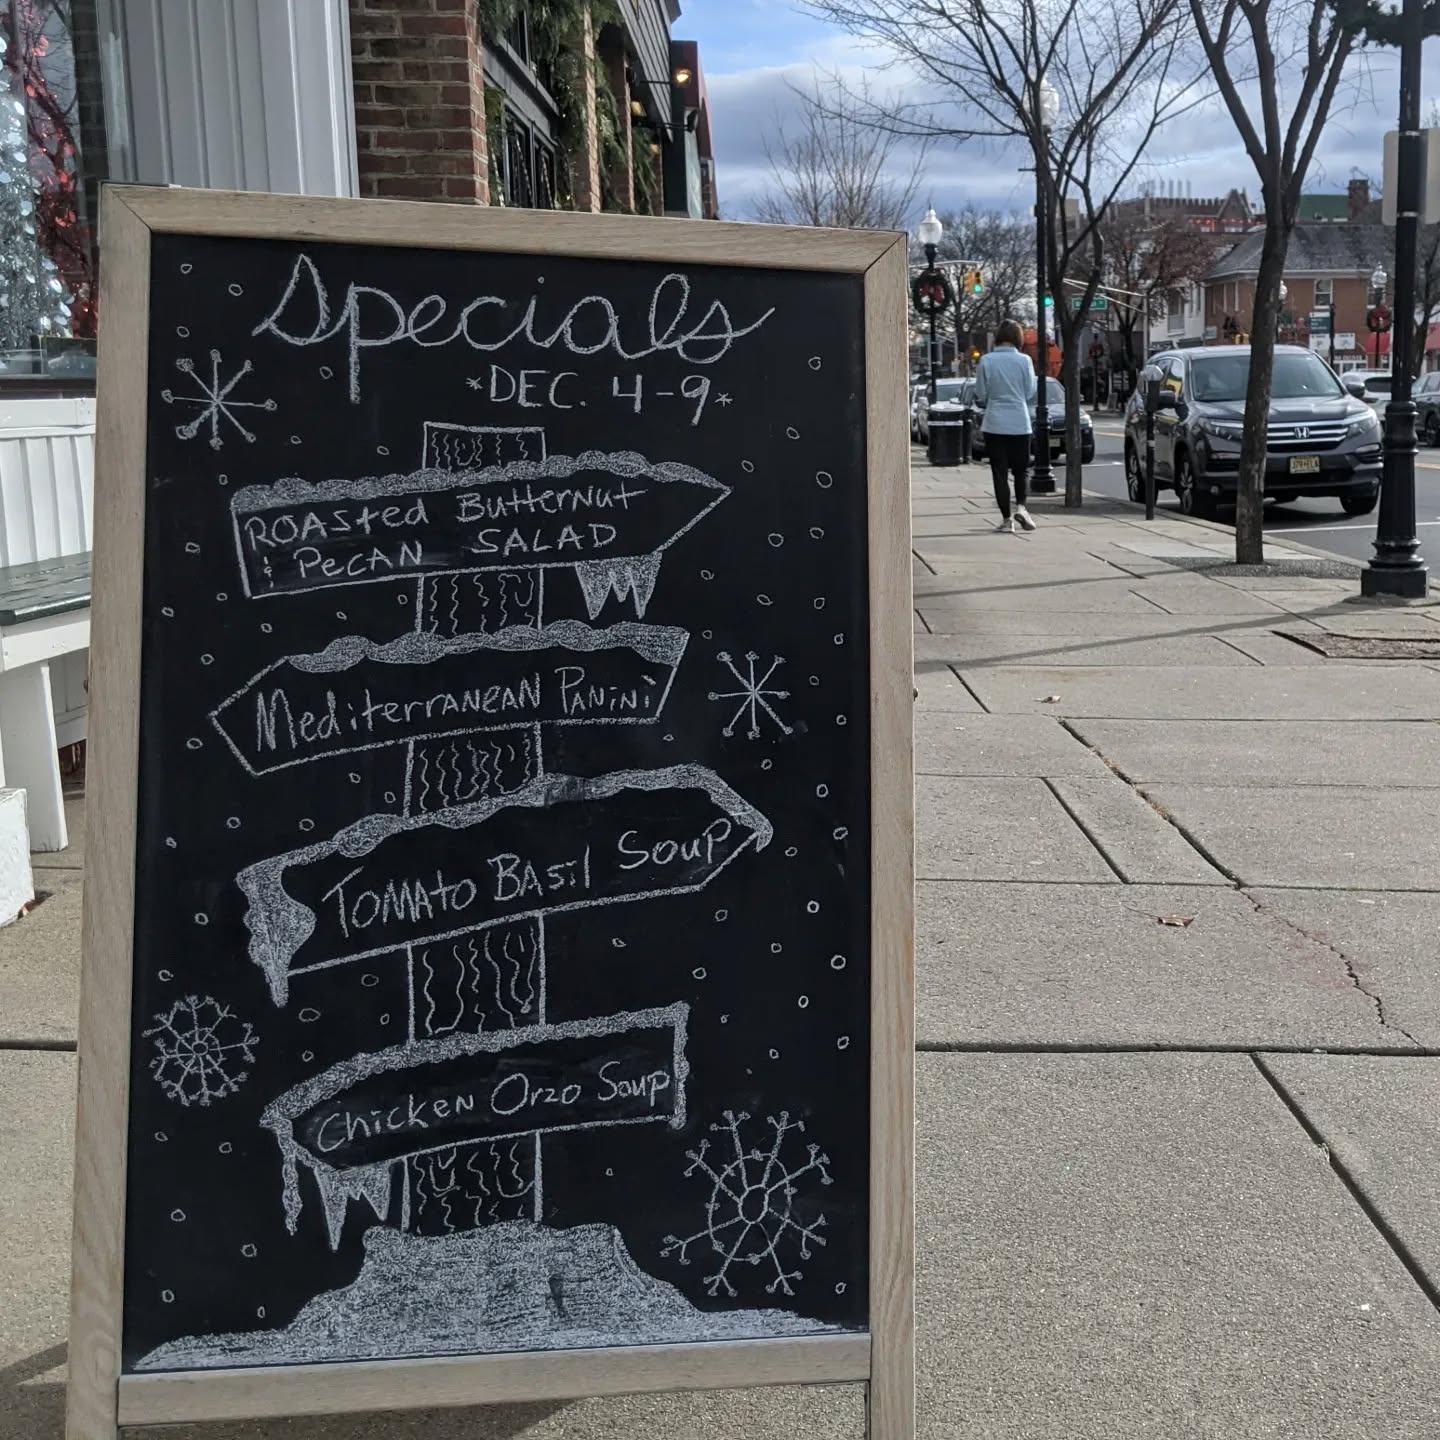 Specials
*DEC. 4-9*
ROASTED BUTTERNUT
& PECAN SALAD
MEDITERRANEAN PANINI
TOMATO BASIL SOUP
CHICKEN ORZO SOUP